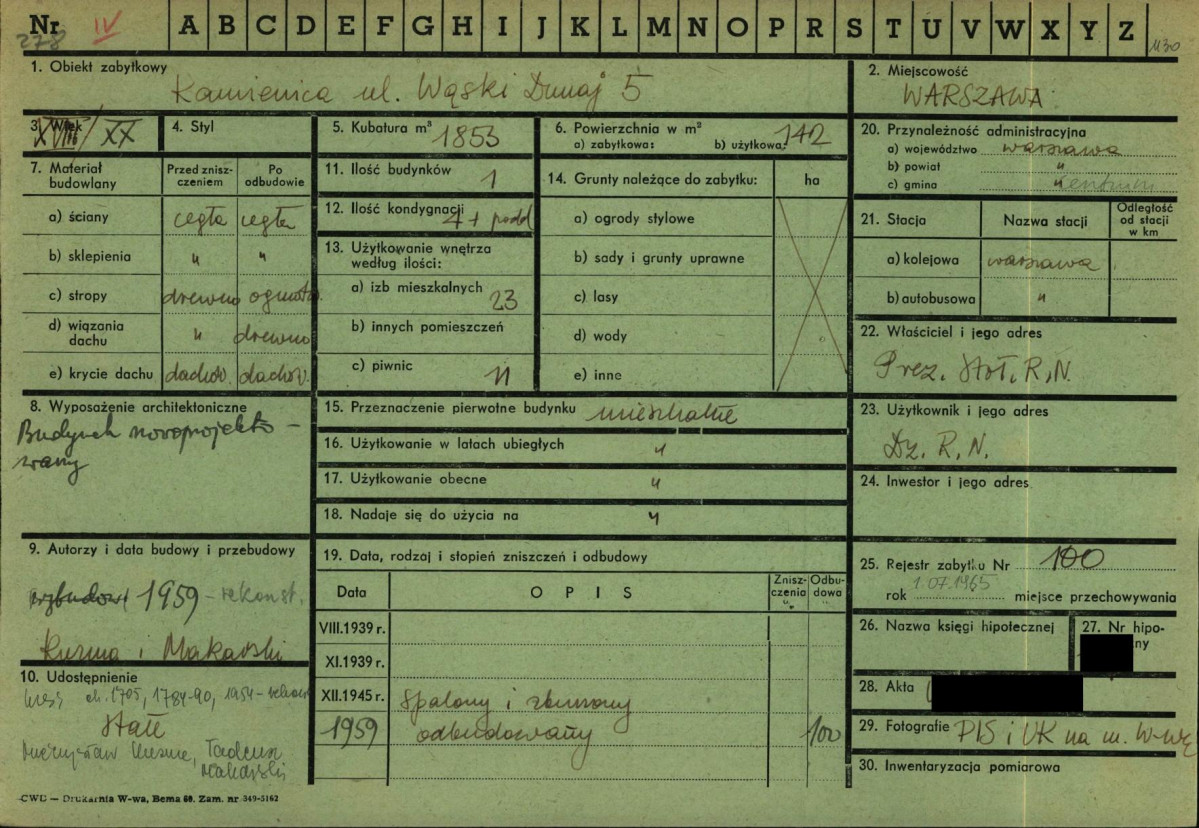 Nr
278
IV
A B C D E F G H I J K L M N O P R S T U V W X Y Z
1130
1. Obiekt zabytkowy
Kamienica ul. Wąski Dunaj 5
2. Miejscowość
WARSZAWA
3. Wiek
XVIII/XX
4. Styl
5. Kubatura m³
1853
6. Powierzchnia w m²
a) zabytkowa: b) użytkowa:
142
7. Materiał budowlany
Przed znisz-
czeniem
Po
odbudowie
a) ściany cegła cegła
b) sklepienia " "
c) stropy drewno ogniotr.
d) wiązania
dachu " drewno
e) krycie dachu dachów. dachów.
8. Wyposażenie architektoniczne
Budynek nowoprojekto-
wany
9. Autorzy i data budowy i przebudowy
1959 - rekonst.
Kuzma i Makarski
10. Udostępnienie
ok. 1705, 1784-90, 1954-
stałe
Mieczysław Kuzma, Tadeusz
Makarski
11. Ilość budynków
1
12. Ilość kondygnacji
4 + podd
13. Użytkowanie wnętrza
według ilości:
a) izb mieszkalnych
23
b) innych pomieszczeń
c) piwnic
11
14. Grunty należące do zabytku: ha
a) ogrody stylowe
b) sady i grunty uprawne
c) lasy
d) wody
e) inne
15. Przeznaczenie pierwotne budynku mieszkalne
16. Użytkowanie w latach ubiegłych "
17. Użytkowanie obecne "
18. Nadaje się do użycia na "
19. Data, rodzaj i stopień zniszczeń i odbudowy
Data
OPIS
Znisz-
czenia
%
Odbu-
dowa
%
VIII.1939 r.
XI.1939 r.
XII.1945 r. spalony i zburzony
1959 odbudowany 100
20. Przynależność administracyjna
a) województwo warszawa
b) powiat "
c) gmina " Centrum
21. Stacja
Nazwa stacji
Odległość
od stacji
w km
a) kolejowa warszawa
b) autobusowa "
22. Właściciel i jego adres
Prez. Stoł. R.N.
23. Użytkownik i jego adres
Dz. R.N.
24. Inwestor i jego adres
25. Rejestr zabytku Nr 100
1.07.1965
rok miejsce przechowywania
26. Nazwa księgi hipotecznej
27. Nr hipo-
ny
28. Akta
29. Fotografie PIS i UK na m. W-wę
30. Inwentaryzacja pomiarowa
CWD — Drukarnia W-wa, Bema 60. Zam. nr 349-5162